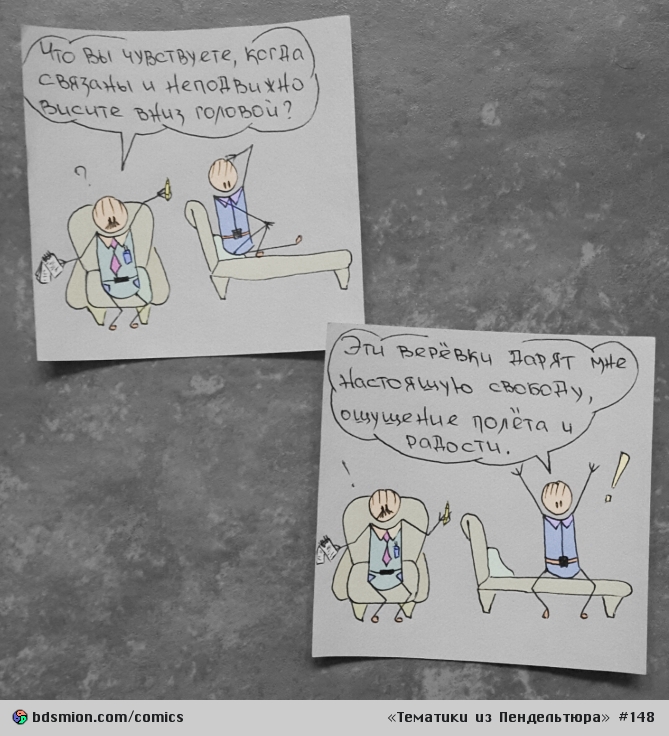 Что вы чувствуете, когда
связаны и неподвижно
висите вниз головой?
?
Эти верёвки дарят мне
настоящую свободу,
ощущение полёта и
радости.
!
!
bdsmion.com/comics
«Тематики из Пендельтюра» #148